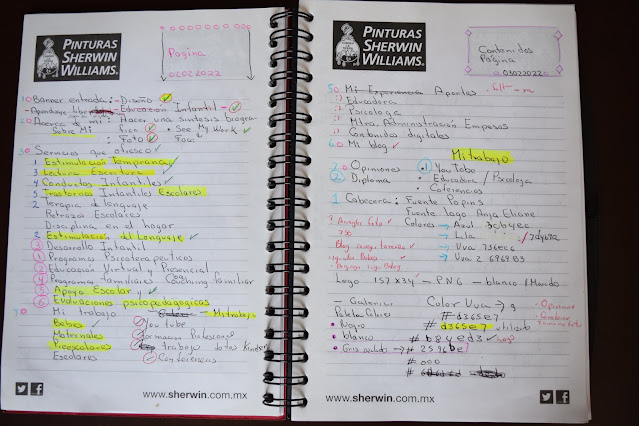 PINTURAS
SHERWIN
WILLIAMS.
Pagina
02022022
1. Banner entrada: - Diseño
- Aprendizaje libre - Educación Infantil -
2. Acerca de mi: Hacer una sintesis biogra-
Sobre Mi fica • See My Work
: Foto
3. Servicios que ofresco
1 Estimulación Temprana
3 Lectura Escritura
4 Conductas Infantiles
Trastornos Infantiles Escolares
2 Terapia de lenguaje
Retrazo Escolares
Disciplina en el hogar
2 Estimulación del Lenguaje
3 Desarrollo Infantil
1 Programas Psicoterapeuticos
2 Educación Virtual y Presencial
4 Programas Familiares Coaching familiar
5 Apoyo Escolar
6 Evaluaciones psicopedagogicas
Mi trabajo Mi trabajo
Bebes You tube
Maternales formacion Profesional
Preescolares trabajo dotes Kinder
Escolares Conferencias
www.sherwin.com.mx
PINTURAS
SHERWIN
WILLIAMS.
Contenidos
Pagina
03022022
5. Mi Experiencia Apontes
Educadora
Psicologa
Mtra. Administración Empresas
Contenidos digitales
6. Mi blog
Mi trabajo
Opiniones 1 YouTobe
2 Diploma • Educadora / Psicologa
• Coferencias
1 Cabecera: Fuente Popins
Fuente logo Anja Eliane
Colores → Azul 3cb4ec
→ Lila
→ Uva 736ecc
→ Uva 2 6969B3
Logo 157x34 - PNG - blanco / Morado
Color Uva → 9
# d365e7
• Negro # d365e7
• blanco # b84ed3
→ # 2596be
# 000
www.sherwin.com.mx